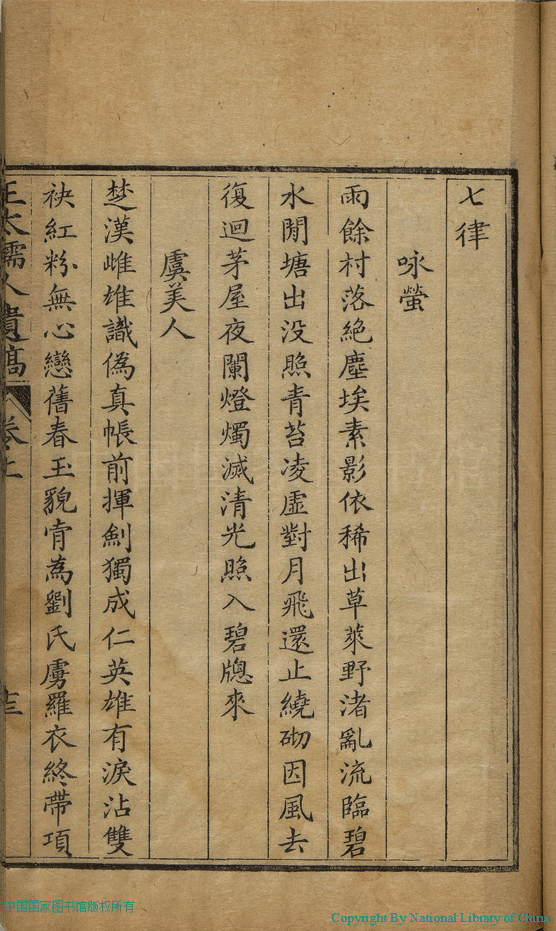 七律
咏螢
雨餘村落絕塵埃素影依稀出草萊野渚亂流臨碧
水閒塘出没照青苔凌虛對月飛還止繞砌因風去
復迴茅屋夜闌燈燭滅清光照入碧牕來
虞美人
楚漢雌雄識偽真帳前揮劍獨成仁英雄有淚沾雙
袂紅粉無心戀舊春玉貌肯為劉氏虜羅衣終帶項
王太孺人遺稿 卷上 十三
中国国家图书馆版权所有
Copyright By National Library of China